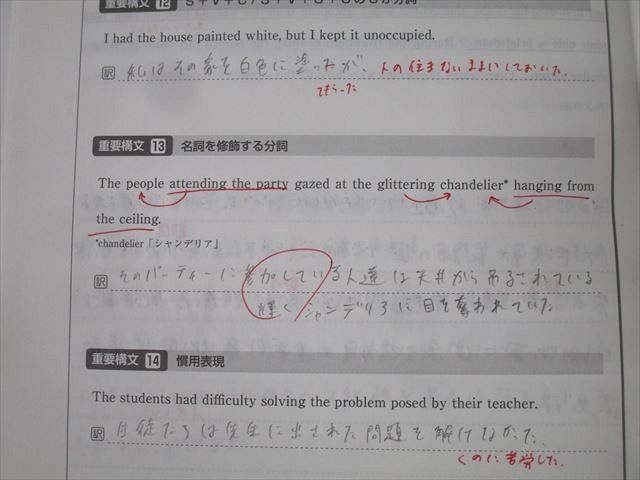 重要構文 12 S+V+C / S+V+O+CのCが分詞
I had the house painted white, but I kept it unoccupied.
訳 私はその家を白色に塗ったが、人の住まないままにしておいた。
てもらった
重要構文 13 名詞を修飾する分詞
The people attending the party gazed at the glittering chandelier* hanging from
the ceiling.
*chandelier「シャンデリア」
訳 そのパーティーに参加している人達は天井から吊るされている
輝くシャンデリアに目を奪われていた
重要構文 14 慣用表現
The students had difficulty solving the problem posed by their teacher.
訳 生徒たちは先生に出された問題を解けなかった.
くのに苦労した.